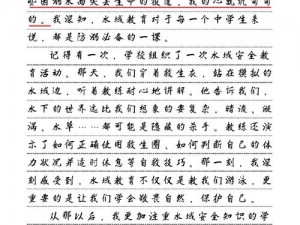 些因溺水而失去生命的报道，我的心就沉甸甸
的。我深知，水域教育对于每一个中学生来
说，都是防溺必备的一课。
记得有一次，学校组织了一次水域安全教
育活动。那天，我们穿着救生衣，站在模拟的
水域边，听着教练耐心地讲解。他告诉我们，
水下的世界远比我们想象的要复杂，暗流、漩
涡、水草……都可能是隐藏的杀手。教练还演
示了如何正确使用救生圈，如何判断自己的体
力状况并适时休息等自救技巧。那一刻，我深
刻感受到，水域教育不仅仅是教我们游泳，更
重要的是让我们学会敬畏自然，保护自己。
从那以后，我更加注重水域安全知识的学